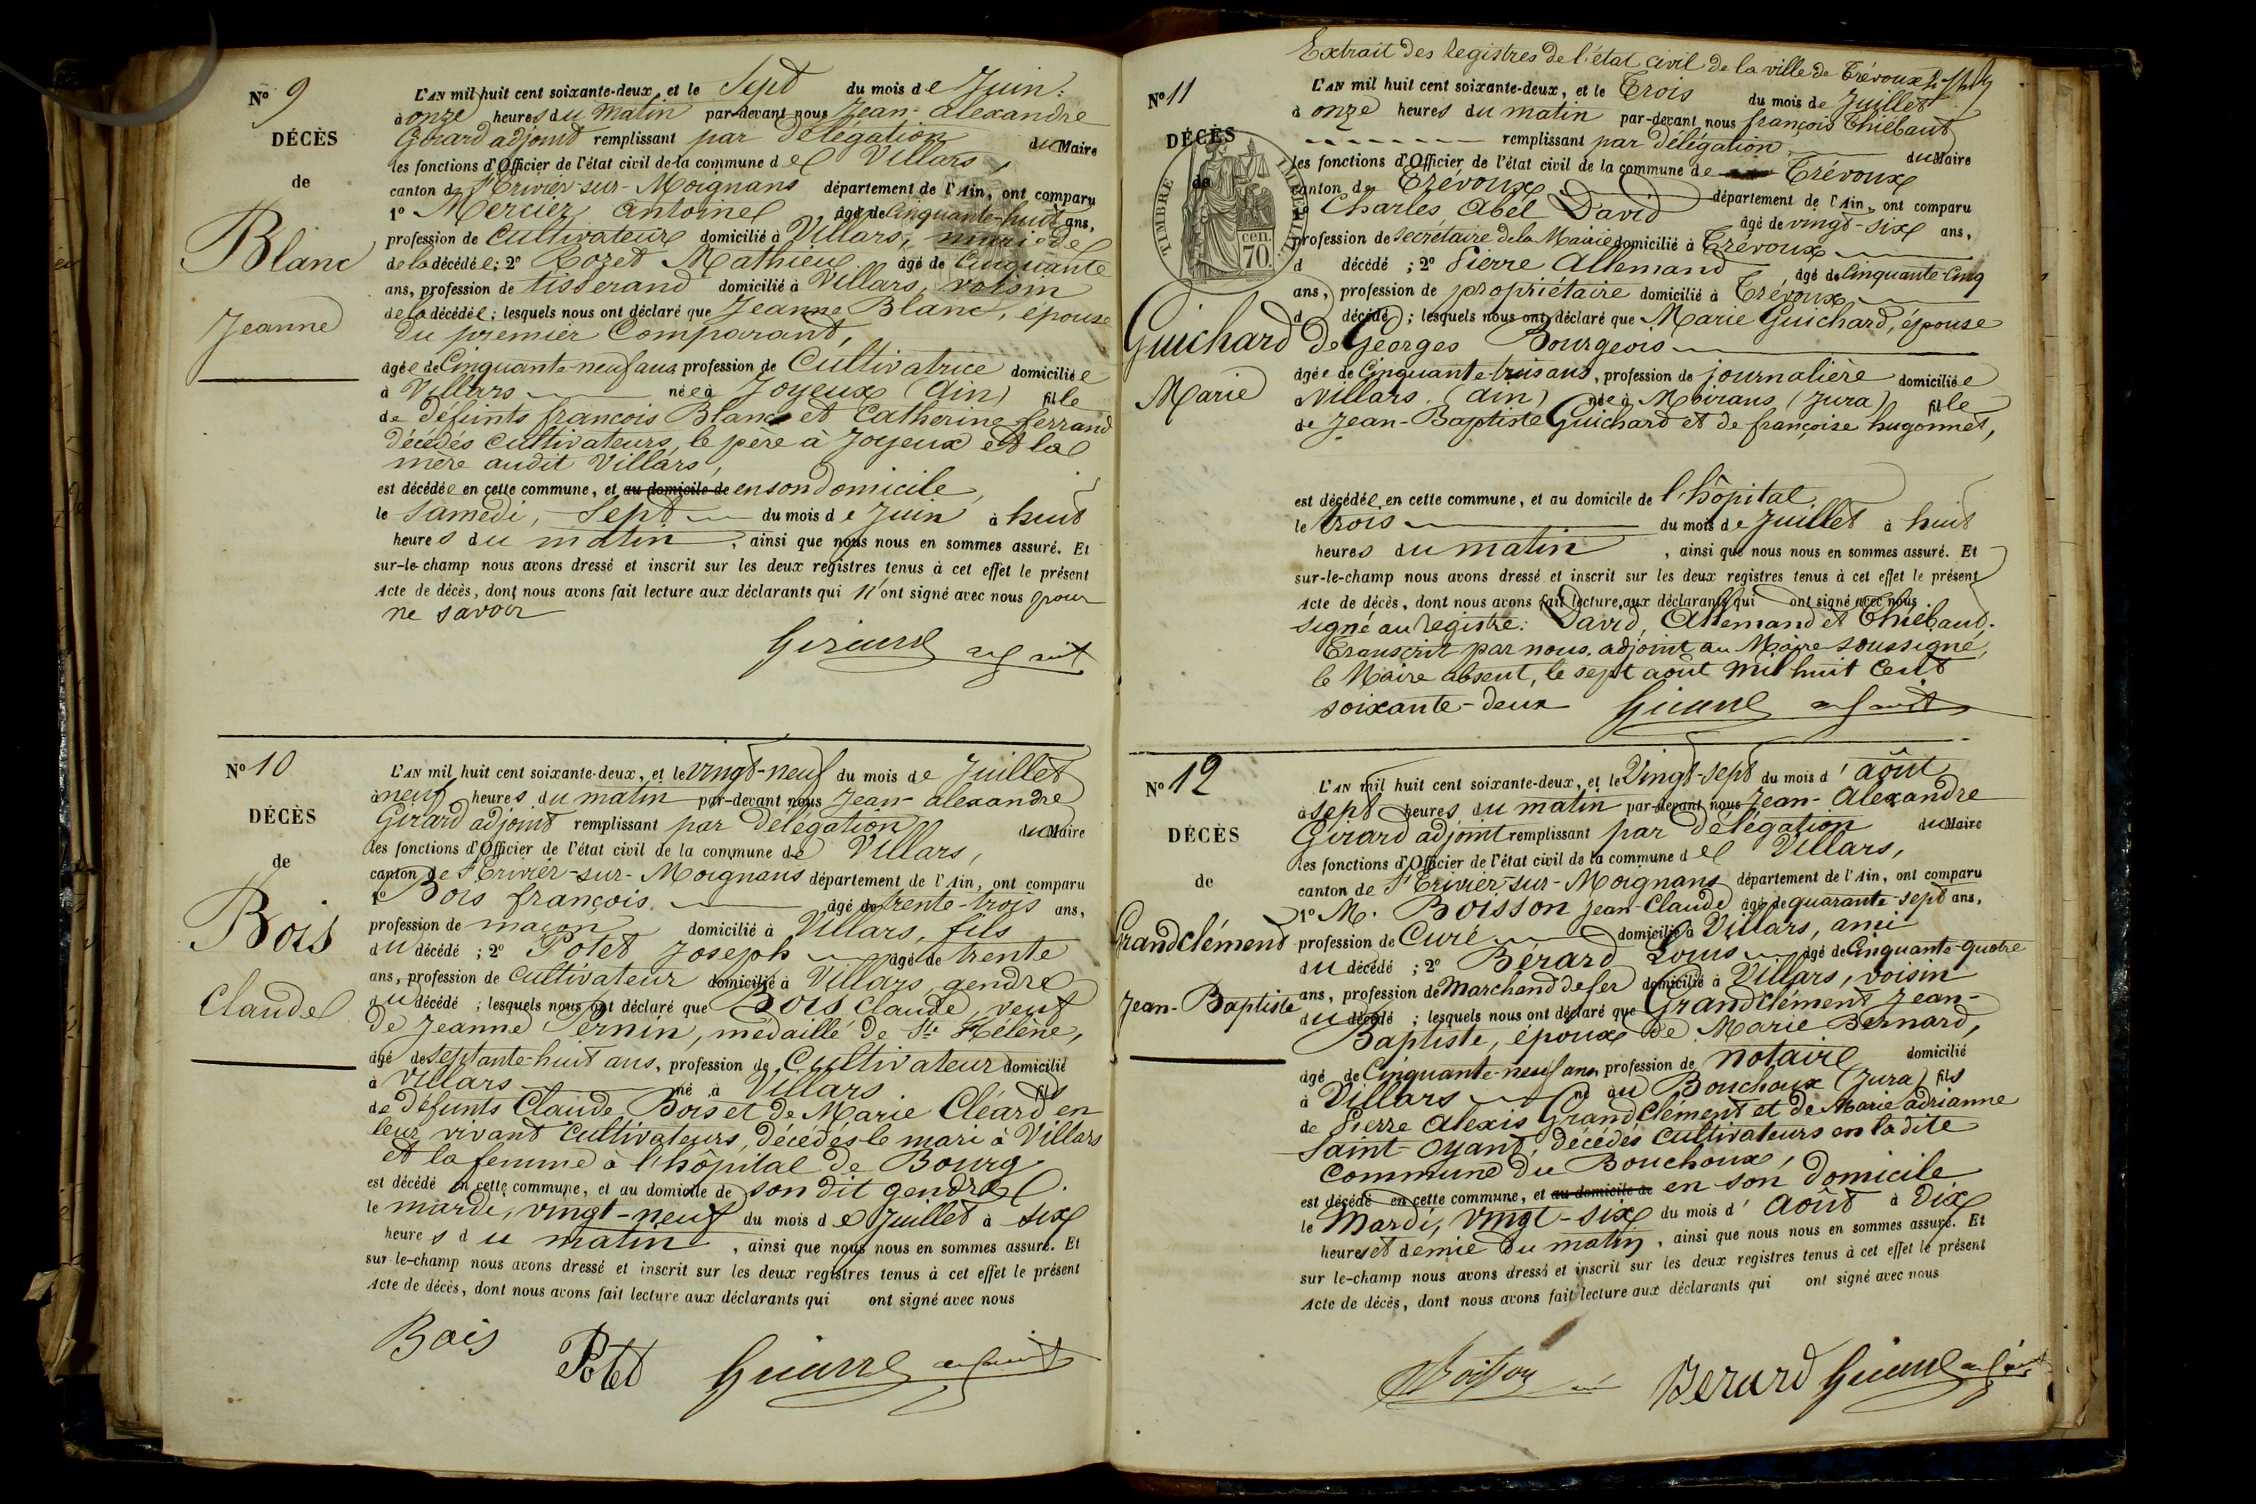 No 9
DÉCÈS
de
Blanc
Jeanne
L'AN mil huit cent soixante-deux, et le Sept du mois de Juin.
à onze heures du matin par-devant nous Jean-alexandre
Girard adjoint remplissant par délégation du Maire
les fonctions d'Officier de l'état civil de la commune de Villars,
canton de St Trivier-sur-Moignans département de l'Ain, ont comparu
1o Mercier, antoine âgé de Cinquante-huit ans,
profession de cultivateur domicilié à Villars, mari de
de la décédée; 2o Rozet Mathieu âgé de Cinquante
ans, profession de tisserand domicilié à Villars, voisin
de la décédée; lesquels nous ont déclaré que Jeanne Blanc, épouse
du premier Comparant,
âgée de Cinquante-neuf ans, profession de Cultivatrice domiciliée
à Villars née à Joyeux (Ain) fille
de défunts françois Blanc et Catherine ferrand
décédés cultivateurs, le père à Joyeux et la
mère audit Villars,
est décédée en cette commune, et au domicile de en son domicile,
le Samedi, Sept du mois de Juin à huit
heures du matin, ainsi que nous nous en sommes assuré. Et
sur-le-champ nous avons dressé et inscrit sur les deux registres tenus à cet effet le présent
Acte de décès, dont nous avons fait lecture aux déclarants qui n'ont signé avec nous pour
ne savoir
Girard adjoint
No 10
DÉCÈS
de
Bois
Claude
L'AN mil huit cent soixante-deux, et le vingt-neuf du mois de Juillet
à neuf heures du matin par-devant nous Jean-alexandre
Girard adjoint remplissant par délégation du Maire
les fonctions d'Officier de l'état civil de la commune de Villars,
canton de St Trivier-sur-Moignans département de l'Ain, ont comparu
1o Bois françois âgé de trente-trois ans,
profession de maçon domicilié à Villars, fils
du décédé; 2o Potet Joseph âgé de trente
ans, profession de cultivateur domicilié à Villars, gendre
du décédé; lesquels nous ont déclaré que Bois Claude, veuf
de Jeanne Pernin, médaillé de Ste Hélène,
âgé de septante-huit ans, profession de Cultivateur domicilié
à Villars né à Villars fils
de défunts Claude Bois et de Marie Cléard en
leur vivant cultivateurs, décédés le mari à Villars
et la femme à l'hôpital de Bourg
est décédé en cette commune, et au domicile de son dit gendre
le mardi, vingt-neuf du mois de Juillet à six
heures du matin, ainsi que nous nous en sommes assuré. Et
sur le-champ nous avons dressé et inscrit sur les deux registres tenus à cet effet le présent
Acte de décès, dont nous avons fait lecture aux déclarants qui ont signé avec nous
Bois Potet Girard adjoint
Extrait des registres de l'état civil de la ville de Trévoux
No 11
DÉCÈS
de
TIMBRE IMPÉRIAL
70 cen.
Guichard
Marie
L'AN mil huit cent soixante-deux, et le Trois du mois de Juillet
à onze heures du matin par-devant nous françois Thiébaut
remplissant par délégation du Maire
les fonctions d'Officier de l'état civil de la commune de Trévoux
canton de Trévoux département de l'Ain, ont comparu
1o Charles Abel David âgé de vingt-six ans,
profession de secrétaire de la Mairie domicilié à Trévoux
d décédé; 2o Pierre Allemand âgé de Cinquante-Cinq
ans, profession de propriétaire domicilié à Trévoux
d décédé; lesquels nous ont déclaré que Marie Guichard, épouse
de Georges Bourgeois
âgée de Cinquante-trois ans, profession de journalière domiciliée
à Villars. (Ain) née à Moirans (Jura) fille
de Jean-Baptiste Guichard et de françoise hugonnet,
est décédée en cette commune, et au domicile de l'hôpital
le trois du mois de Juillet à huit
heures du matin, ainsi que nous nous en sommes assuré. Et
sur-le-champ nous avons dressé et inscrit sur les deux registres tenus à cet effet le présent
Acte de décès, dont nous avons fait lecture aux déclarants qui ont signé avec nous
signé au registre: David, Allemand et Thiébaud.
Transcrit par nous adjoint au Maire soussigné,
le Maire absent, le sept août mil huit Cent
soixante-deux Girard adjoint
No 12
DÉCÈS
de
Grandclément
Jean-Baptiste
L'AN mil huit cent soixante-deux, et le Vingt-sept du mois d'août
à sept heures du matin par-devant nous Jean-Alexandre
Girard adjoint remplissant par délégation du Maire
les fonctions d'Officier de l'état civil de la commune de Villars,
canton de St Trivier-sur-Moignans département de l'Ain, ont comparu
1o M. Boisson Jean-Claude âgé de quarante-sept ans,
profession de Curé domicilié à Villars, ami
du décédé; 2o Bérard Louis âgé de Cinquante-quatre
ans, profession de Marchand de fer domicilié à Villars, voisin
du décédé; lesquels nous ont déclaré que Grandclément Jean-
Baptiste, époux de Marie Bernard,
âgé de Cinquante-neuf ans, profession de notaire domicilié
à Villars né au Bouchoux (Jura) fils
de Pierre Alexis Grandclément et de Marie adrianne
Saint-Oyant, décédés cultivateurs en la dite
Commune du Bouchoux,
est décédé en cette commune, et au domicile de en son domicile
le Mardi, vingt-six du mois d'Août à Dix
heures et demie du matin, ainsi que nous nous en sommes assuré. Et
sur le-champ nous avons dressé et inscrit sur les deux registres tenus à cet effet le présent
Acte de décès, dont nous avons fait lecture aux déclarants qui ont signé avec nous
Boisson Berard Girard adjoint